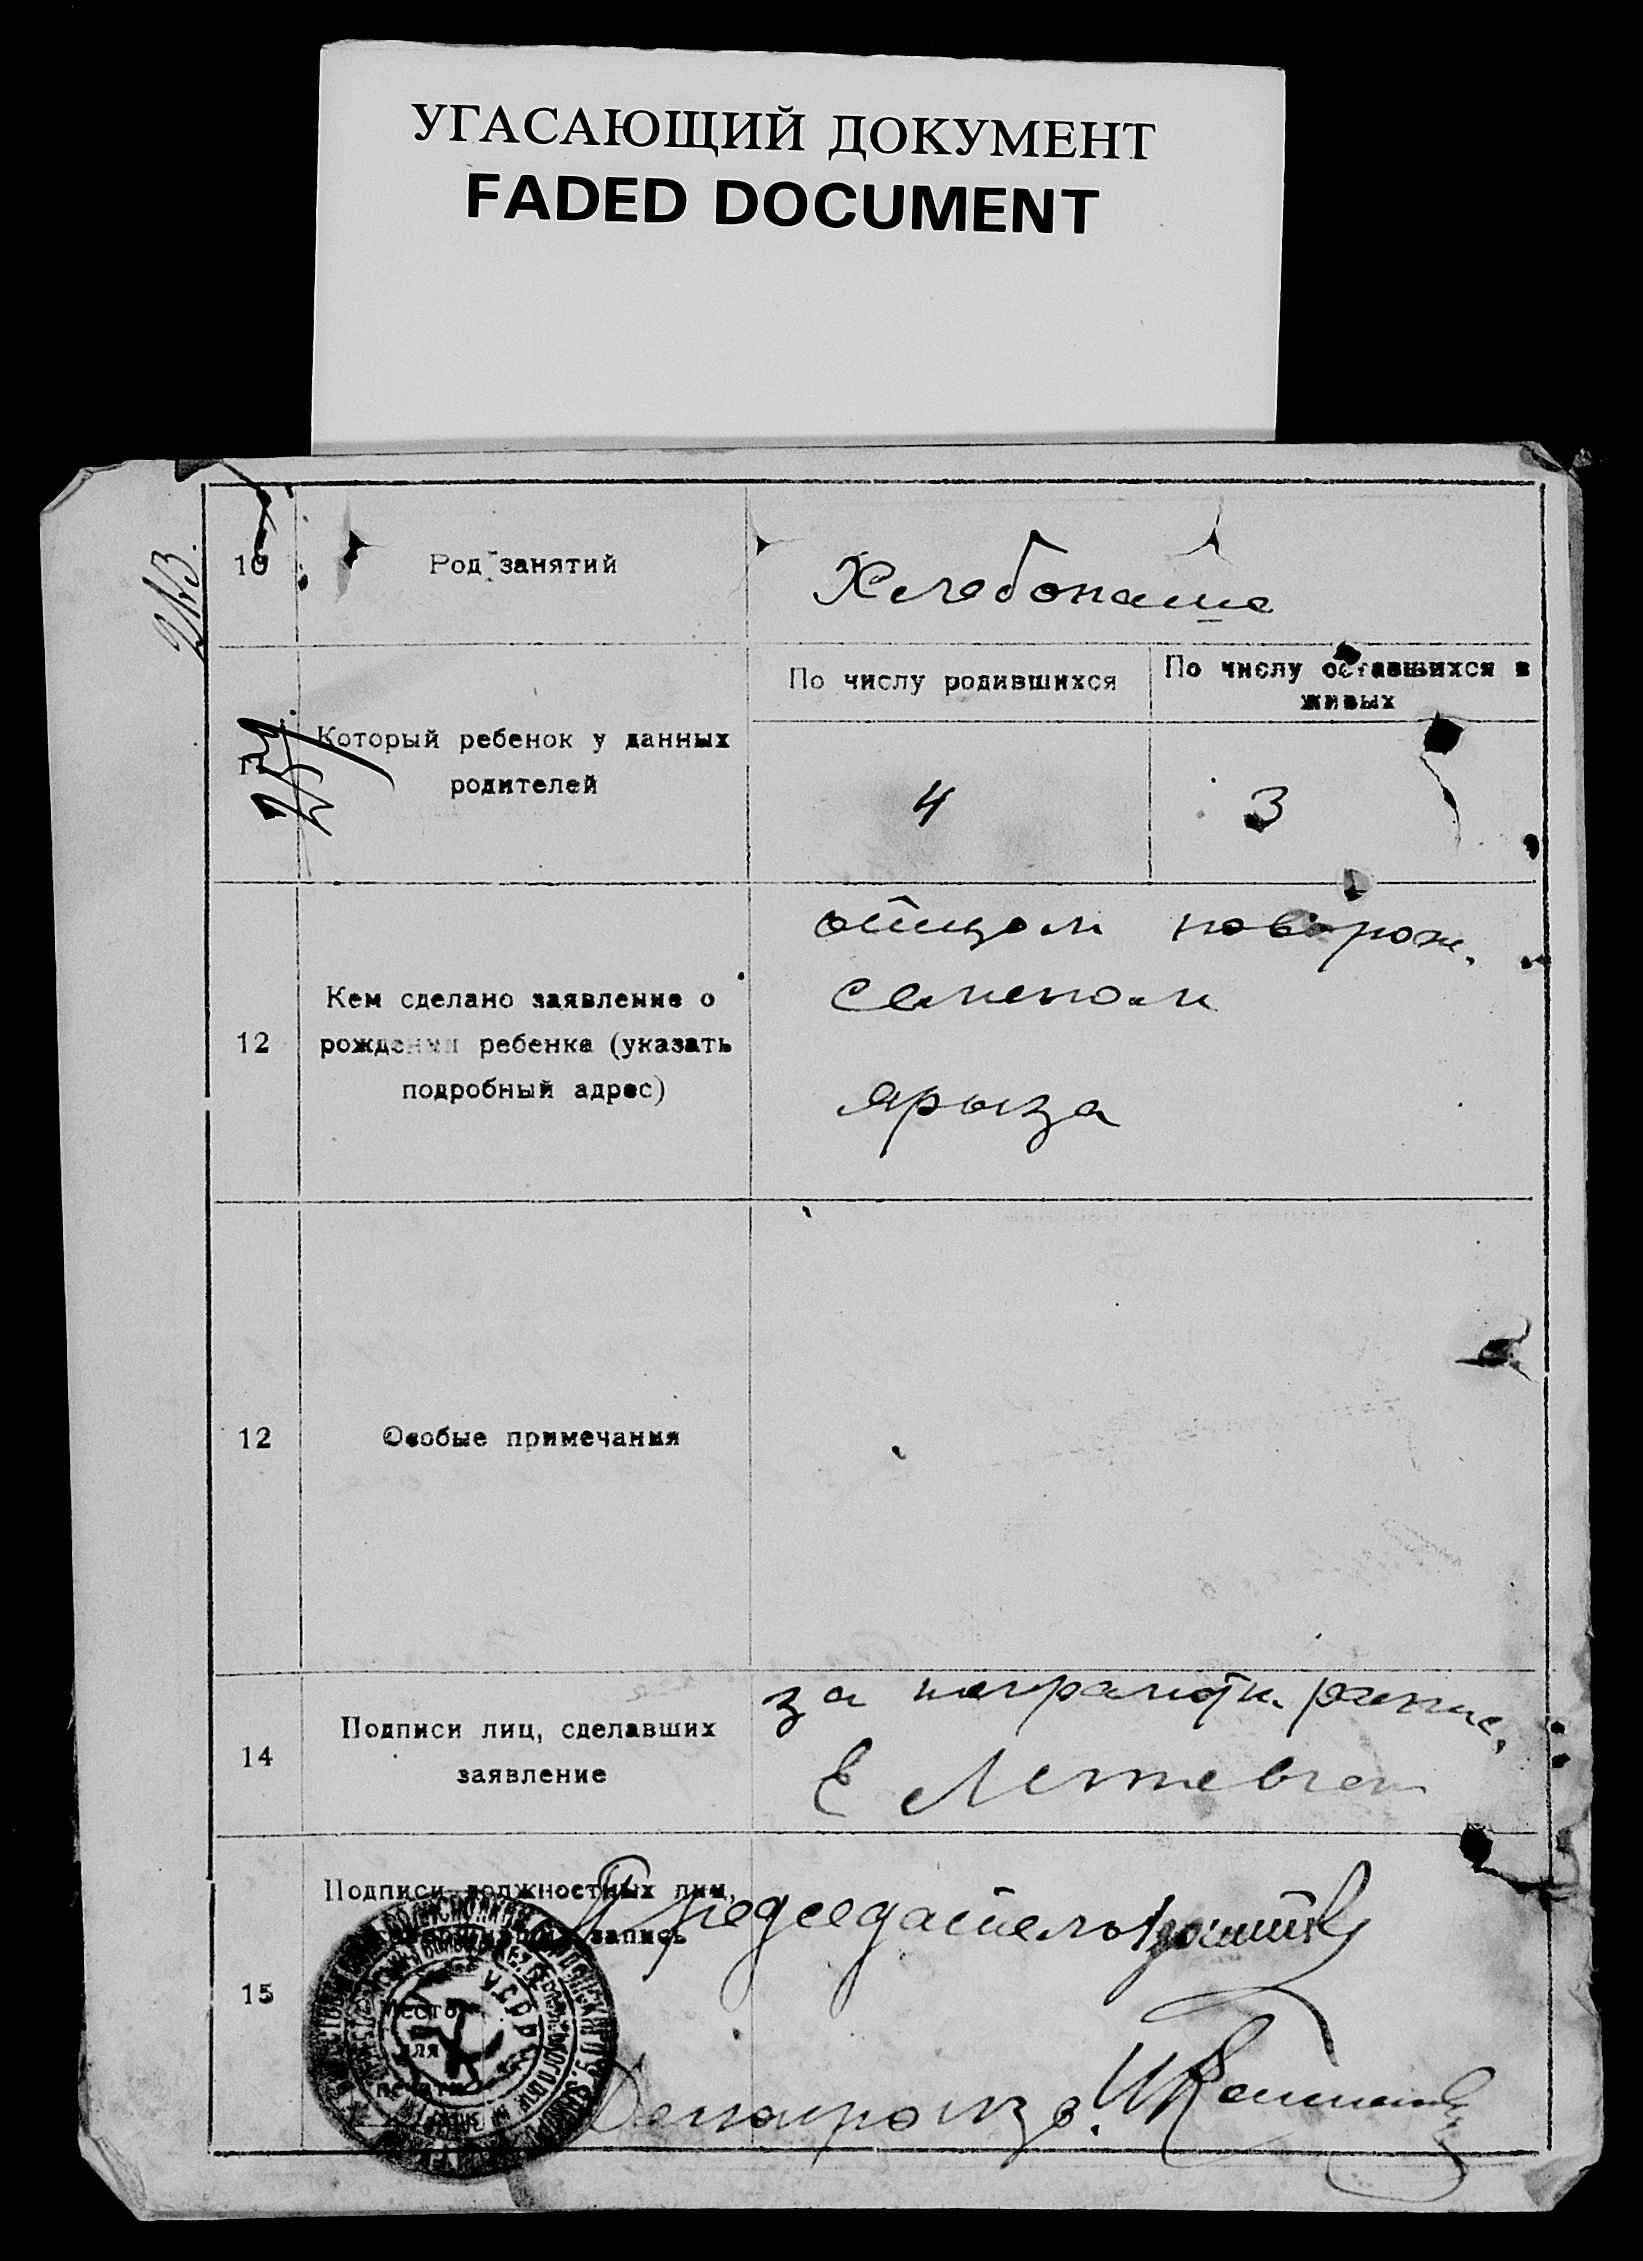 УГАСАЮЩИЙ ДОКУМЕНТ
FADED DOCUMENT
10
Род занятий
Хлебопаше
По числу родившихся
По числу оставшихся в
живых
Который ребенок у данных
родителей
4
3
12
Кем сделано заявление о
рождения ребенка (указать
подробный адрес)
отцом новорож.
Семеном
Ярыза
12
Особые примечания
14
Подписи лиц, сделавших
заявление
за неграмотн.
Е
15
Подписи должностных лиц,
запись
Место
для
печати
У.С.Р.Р.
Председатель
Делопроизв.